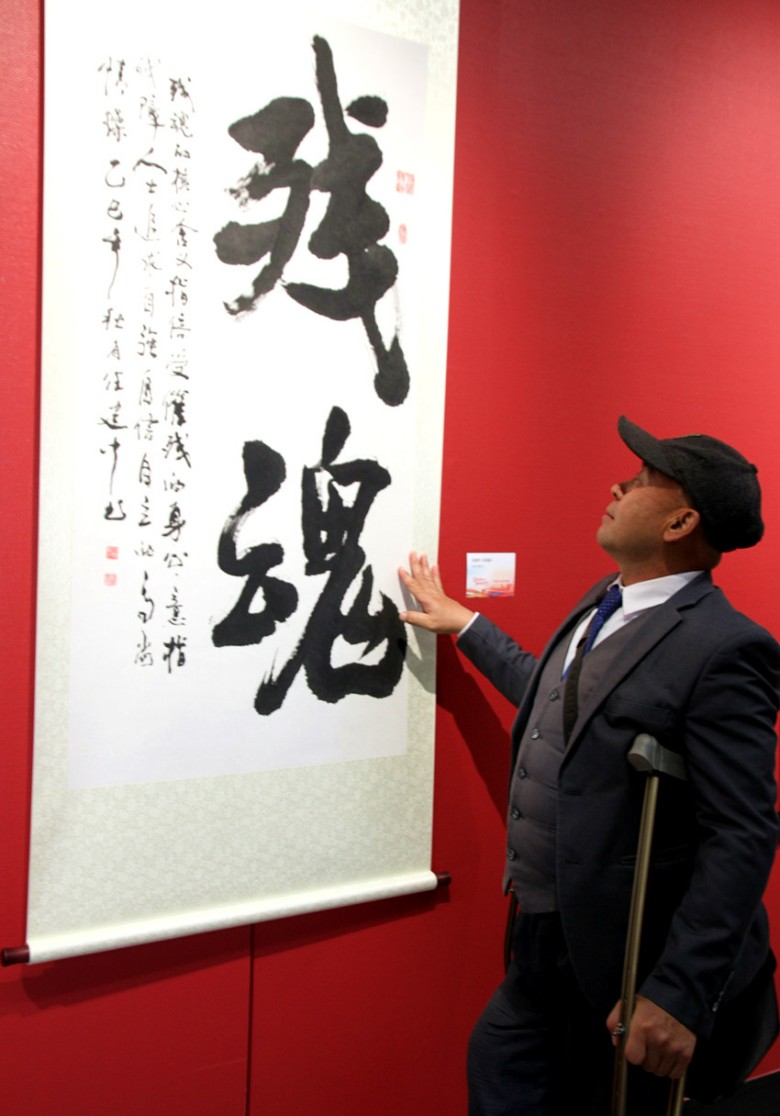 残魂
残魂的核心含义指倍受摧残的身心、意指
残障人士追求自强自信自立的高尚
情操 乙巳年 秋月任建中书